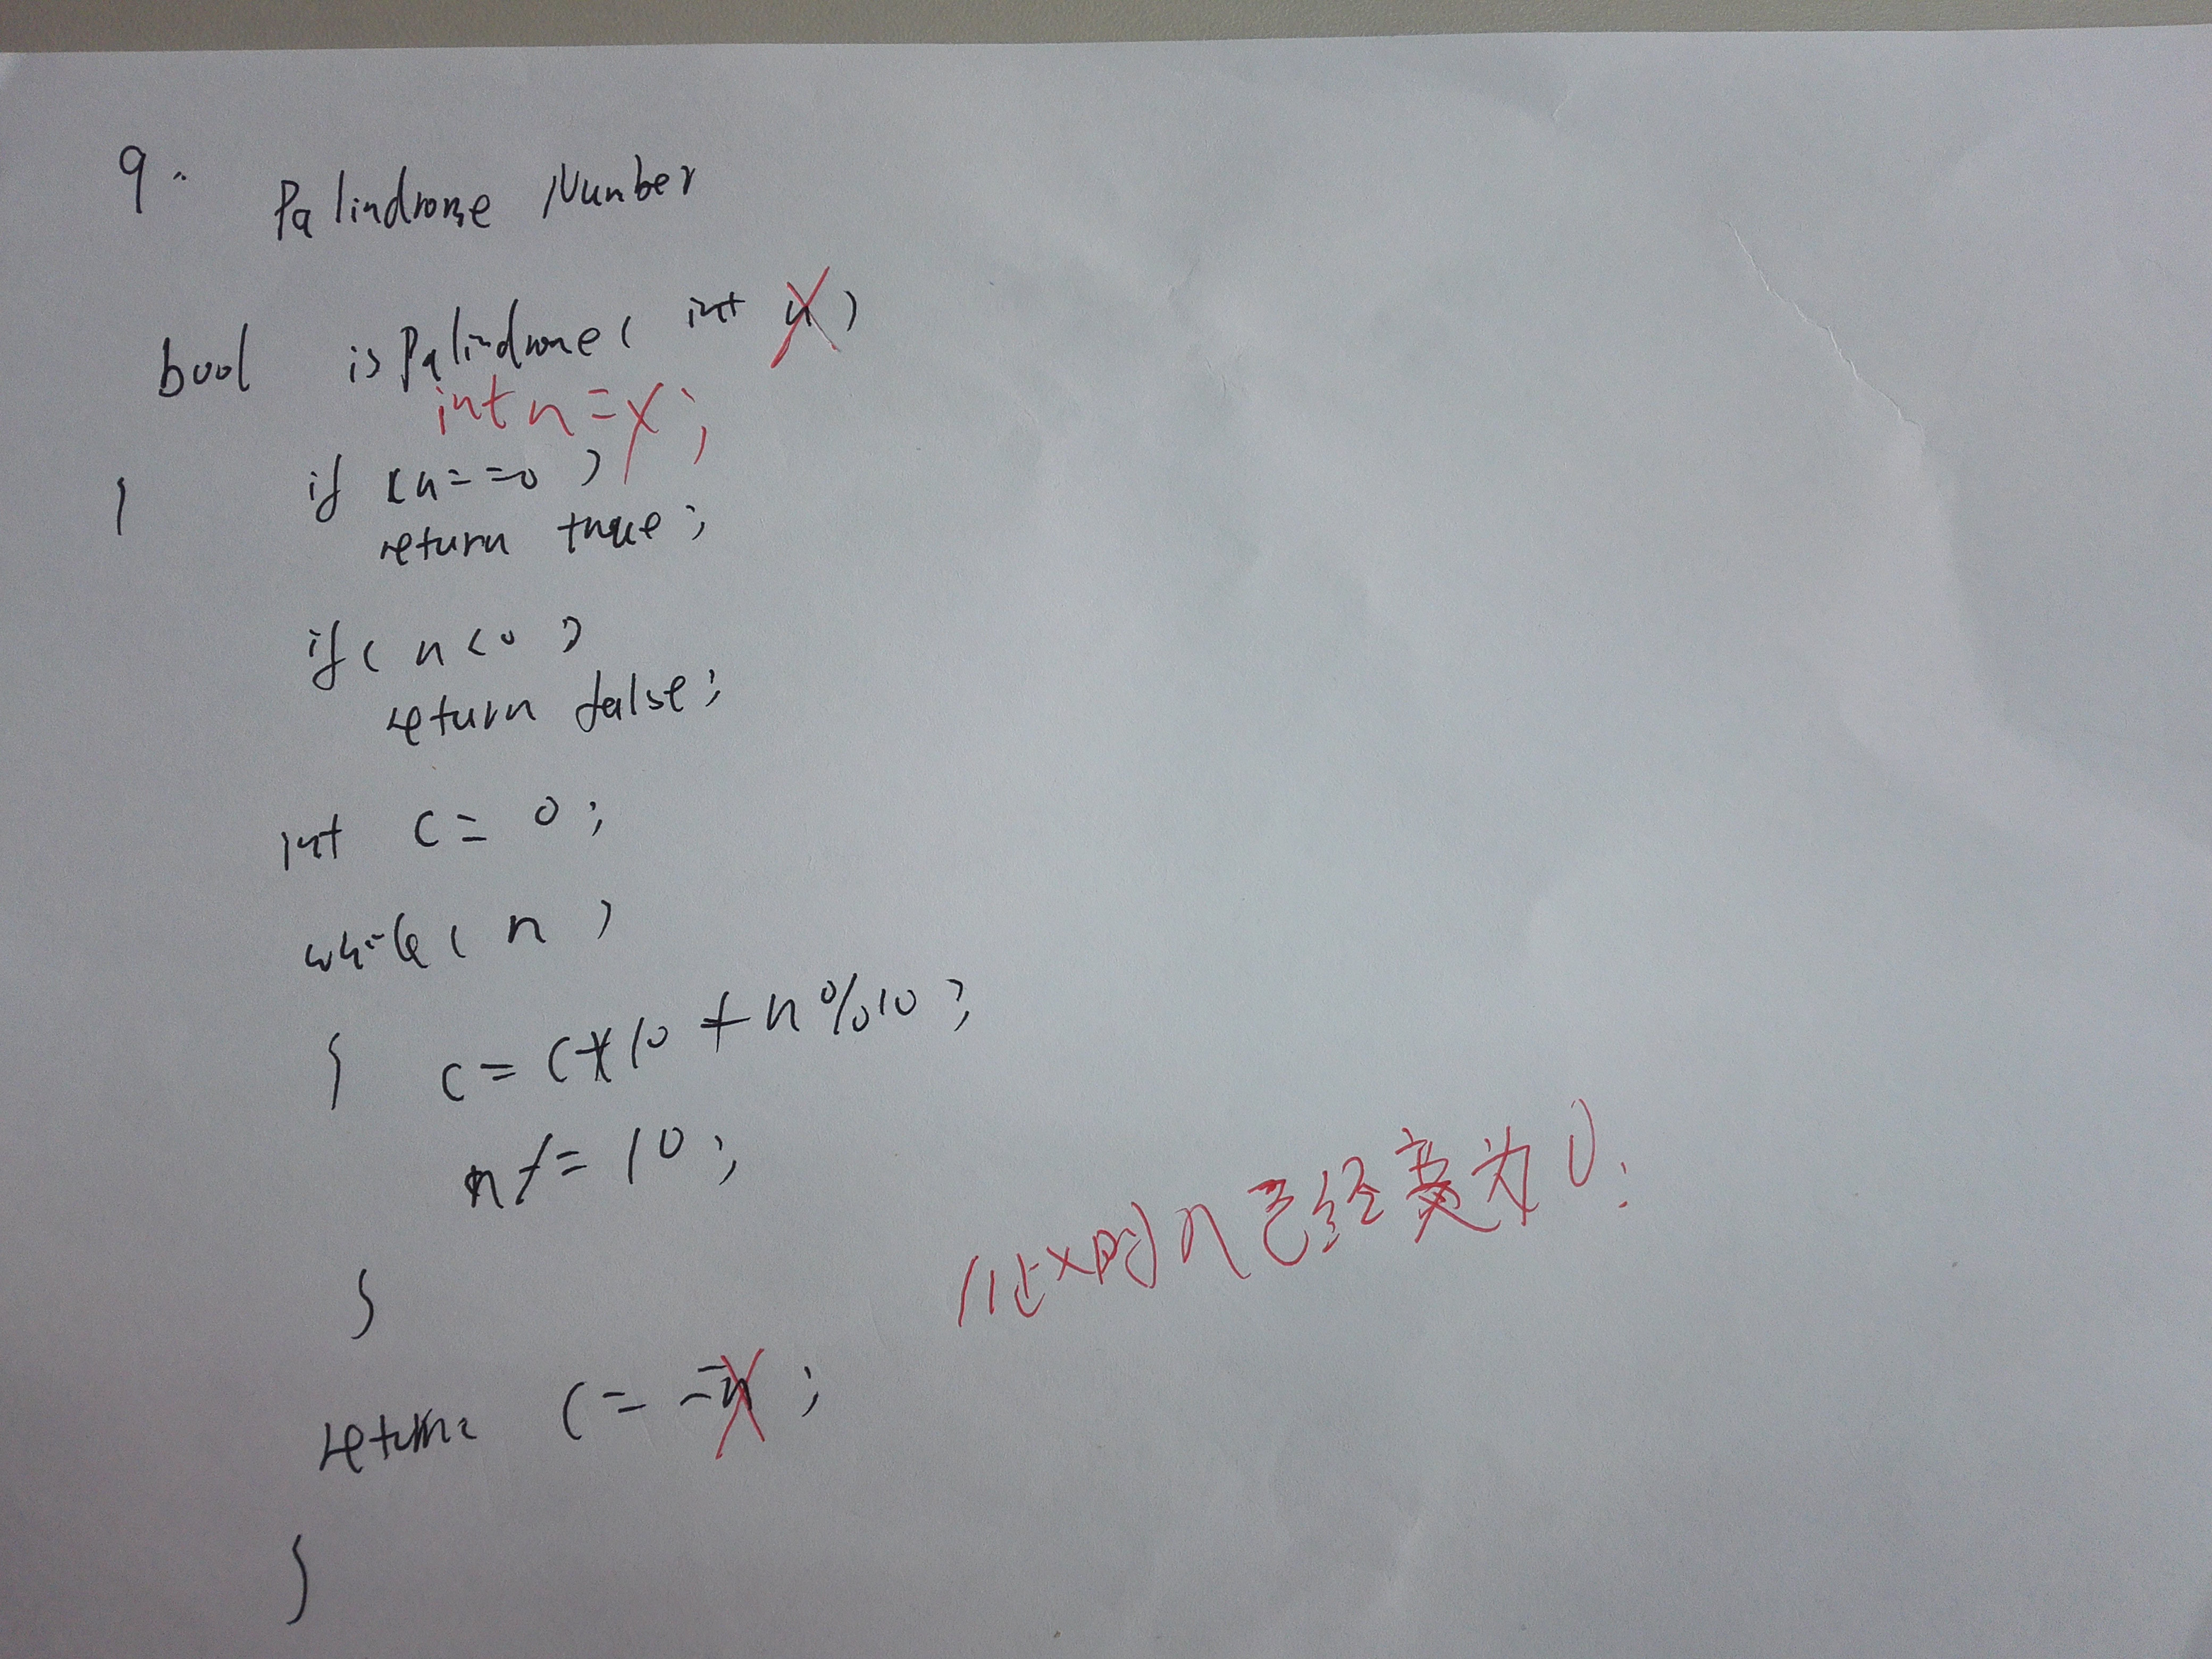 9.
Palindrome Number
bool isPalindrome( int x)
int n = x;
{ if (n==0)
return true;
if( n<0 )
return false;
int c = 0;
while( n )
{ c = c*10 + n%10;
n/= 10;
}
//此时n已经变为0;
return c==x;
}